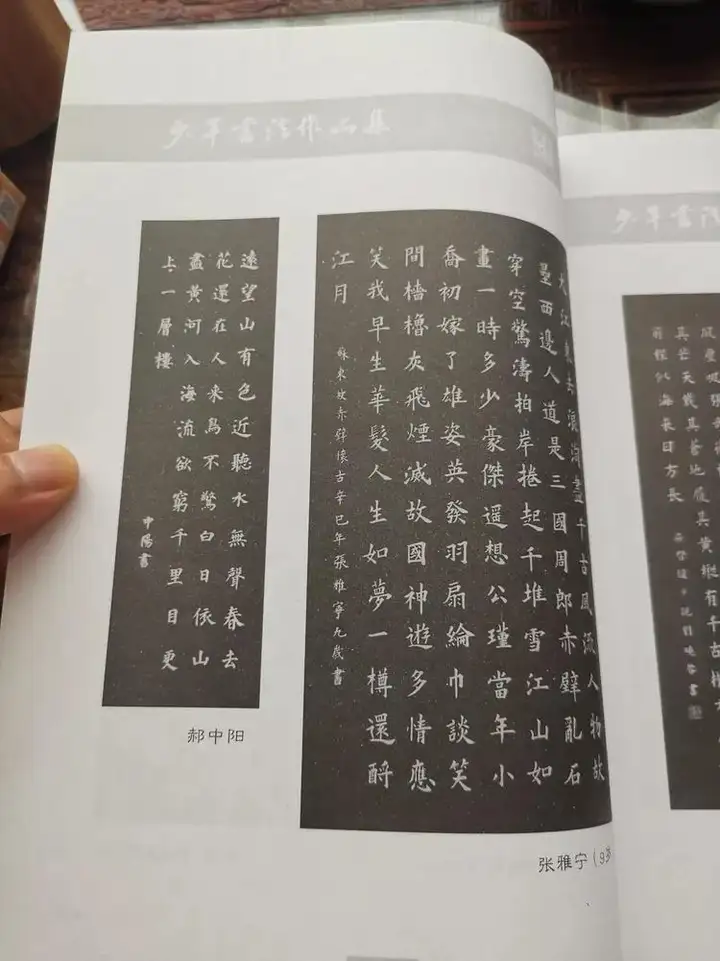 少年書法作品集
遠望山有色近聽水無聲春去
花還在人來鳥不驚白日依山
盡黃河入海流欲窮千里目更
上一層樓
中陽書
郝中阳
大江東去浪淘盡千古風流人物故
壘西邊人道是三國周郎赤壁亂石
穿空驚濤拍岸捲起千堆雪江山如
畫一時多少豪傑遥想公瑾當年小
喬初嫁了雄姿英發羽扇綸巾談笑
間檣櫓灰飛煙滅故國神遊多情應
笑我早生華髮人生如夢一樽還酹
江月
蘇東坡赤壁懷古辛巳年張雅寧九歲書
张雅宁（9岁
少年書法
其芒天戴其蒼地履其黃縱有千古橫
前程似海來日方長